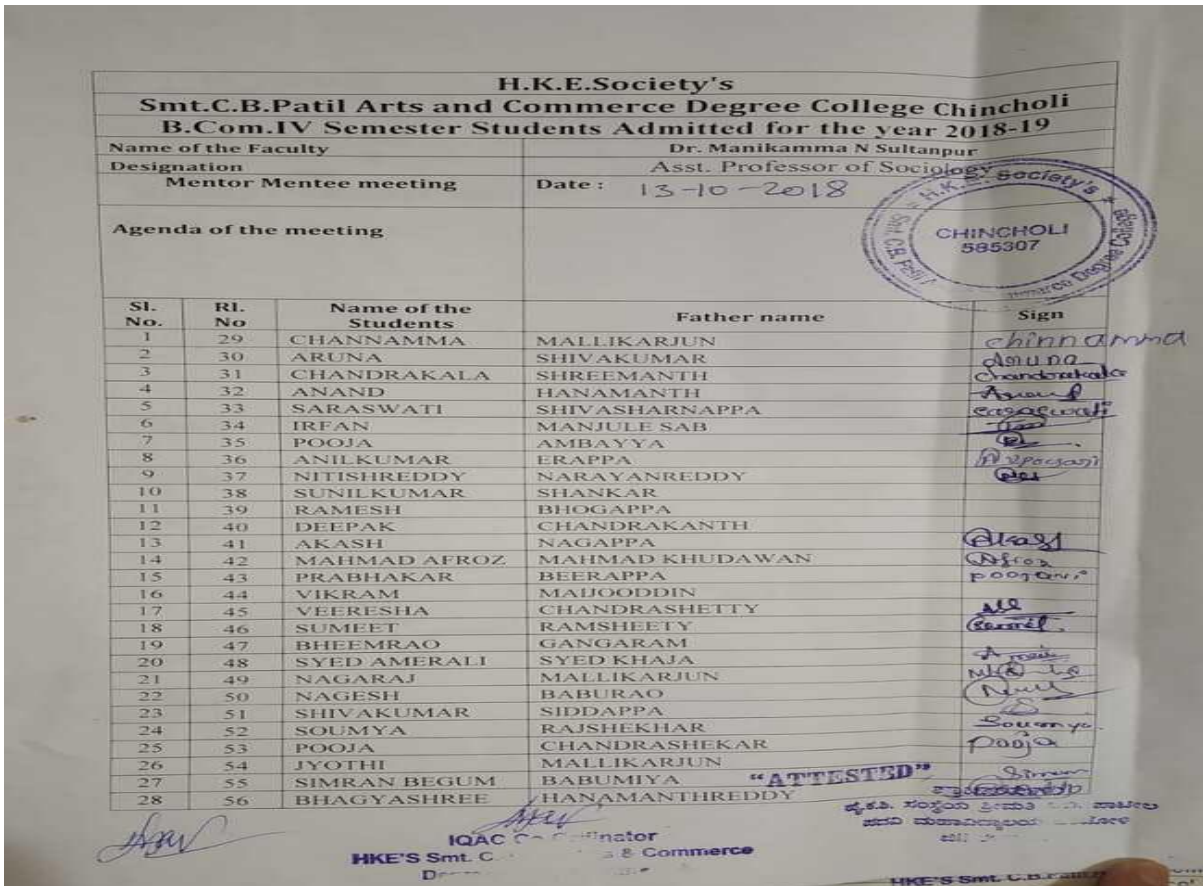 H.K.E.Society's
Smt.C.B.Patil Arts and Commerce Degree College Chincholi
B.Com.IV Semester Students Admitted for the year 2018-19
Name of the Faculty Dr. Manikamma N Sultanpur
Designation Asst. Professor of Sociology
Mentor Mentee meeting Date : 13-10-2018
H.K.E. Society's
Smt. C.B. Patil
Degree College
CHINCHOLI
585307
Agenda of the meeting
Sl. No. Rl. No Name of the Students Father name Sign
1 29 CHANNAMMA MALLIKARJUN chinnamma
2 30 ARUNA SHIVAKUMAR Aruna
3 31 CHANDRAKALA SHREEMANTH Chandrakala
4 32 ANAND HANAMANTH Anand
5 33 SARASWATI SHIVASHARNAPPA saraswati
6 34 IRFAN MANJULE SAB
7 35 POOJA AMBAYYA
8 36 ANILKUMAR ERAPPA
9 37 NITISHREDDY NARAYANREDDY
10 38 SUNILKUMAR SHANKAR
11 39 RAMESH BHOGAPPA
12 40 DEEPAK CHANDRAKANTH
13 41 AKASH NAGAPPA Akash
14 42 MAHMAD AFROZ MAHMAD KHUDAWAN Afroz
15 43 PRABHAKAR BEERAPPA
16 44 VIKRAM MAIJOODDIN
17 45 VEERESHA CHANDRASHETTY
18 46 SUMEET RAMSHEETY
19 47 BHEEMRAO GANGARAM
20 48 SYED AMERALI SYED KHAJA
21 49 NAGARAJ MALLIKARJUN
22 50 NAGESH BABURAO
23 51 SHIVAKUMAR SIDDAPPA
24 52 SOUMYA RAJSHEKHAR Soumya
25 53 POOJA CHANDRASHEKAR Pooja
26 54 JYOTHI MALLIKARJUN
27 55 SIMRAN BEGUM BABUMIYA Simran
28 56 BHAGYASHREE HANAMANTHREDDY
"ATTESTED"
IQAC
HKE'S Smt. C. & Commerce
HKE'S Smt. C.B.